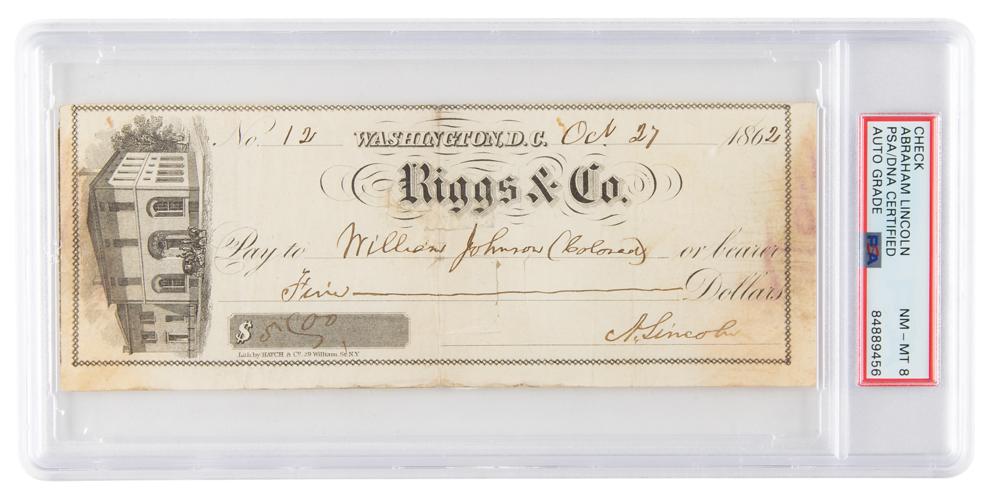 No. 12 WASHINGTON, D.C. Oct 27 1862
Riggs & Co.
Pay to William Johnson (Colored) or bearer
Five Dollars
$ 5/00
Lith. by HATCH & Co. 29 William St. N.Y.
A. Lincoln
CHECK
ABRAHAM LINCOLN
PSA/DNA CERTIFIED
AUTO GRADE
PSA
NM – MT 8
84889456